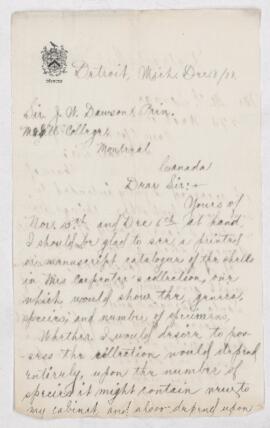 Detroit, Mich. Dec 8/
Sir J. W. Dawson, Prin.
McGill College
Montreal
Canada
Dear Sir:-
Yours of
Nov. and Dec 6th at hand
I should be glad to see a printed
or manuscript catalogue of the shells
in Mrs Carpenter's collection, one
which would show the genera,
species and number of specimens.
Whether I would desire to pos-
sess the collection would depend
entirely upon the number of
species it might contain new to
my cabinet and also depend upon